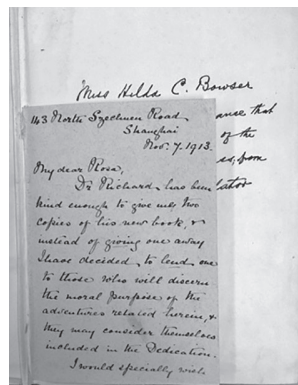 Miss Hilda C. Bowser
ance that
of the
ss, from
lator
143 North Szechuen Road,
Shanghai
Nov. 7. 1913.
My dear Rosa,
Dr Richard, has been
kind enough to give me two
copies of his new book, &
instead of giving one away
I have decided to lend one
to those who will discern
the moral purpose of the
adventures related herein, &
they may consider themselves
included in the Dedication.
I would specially wish